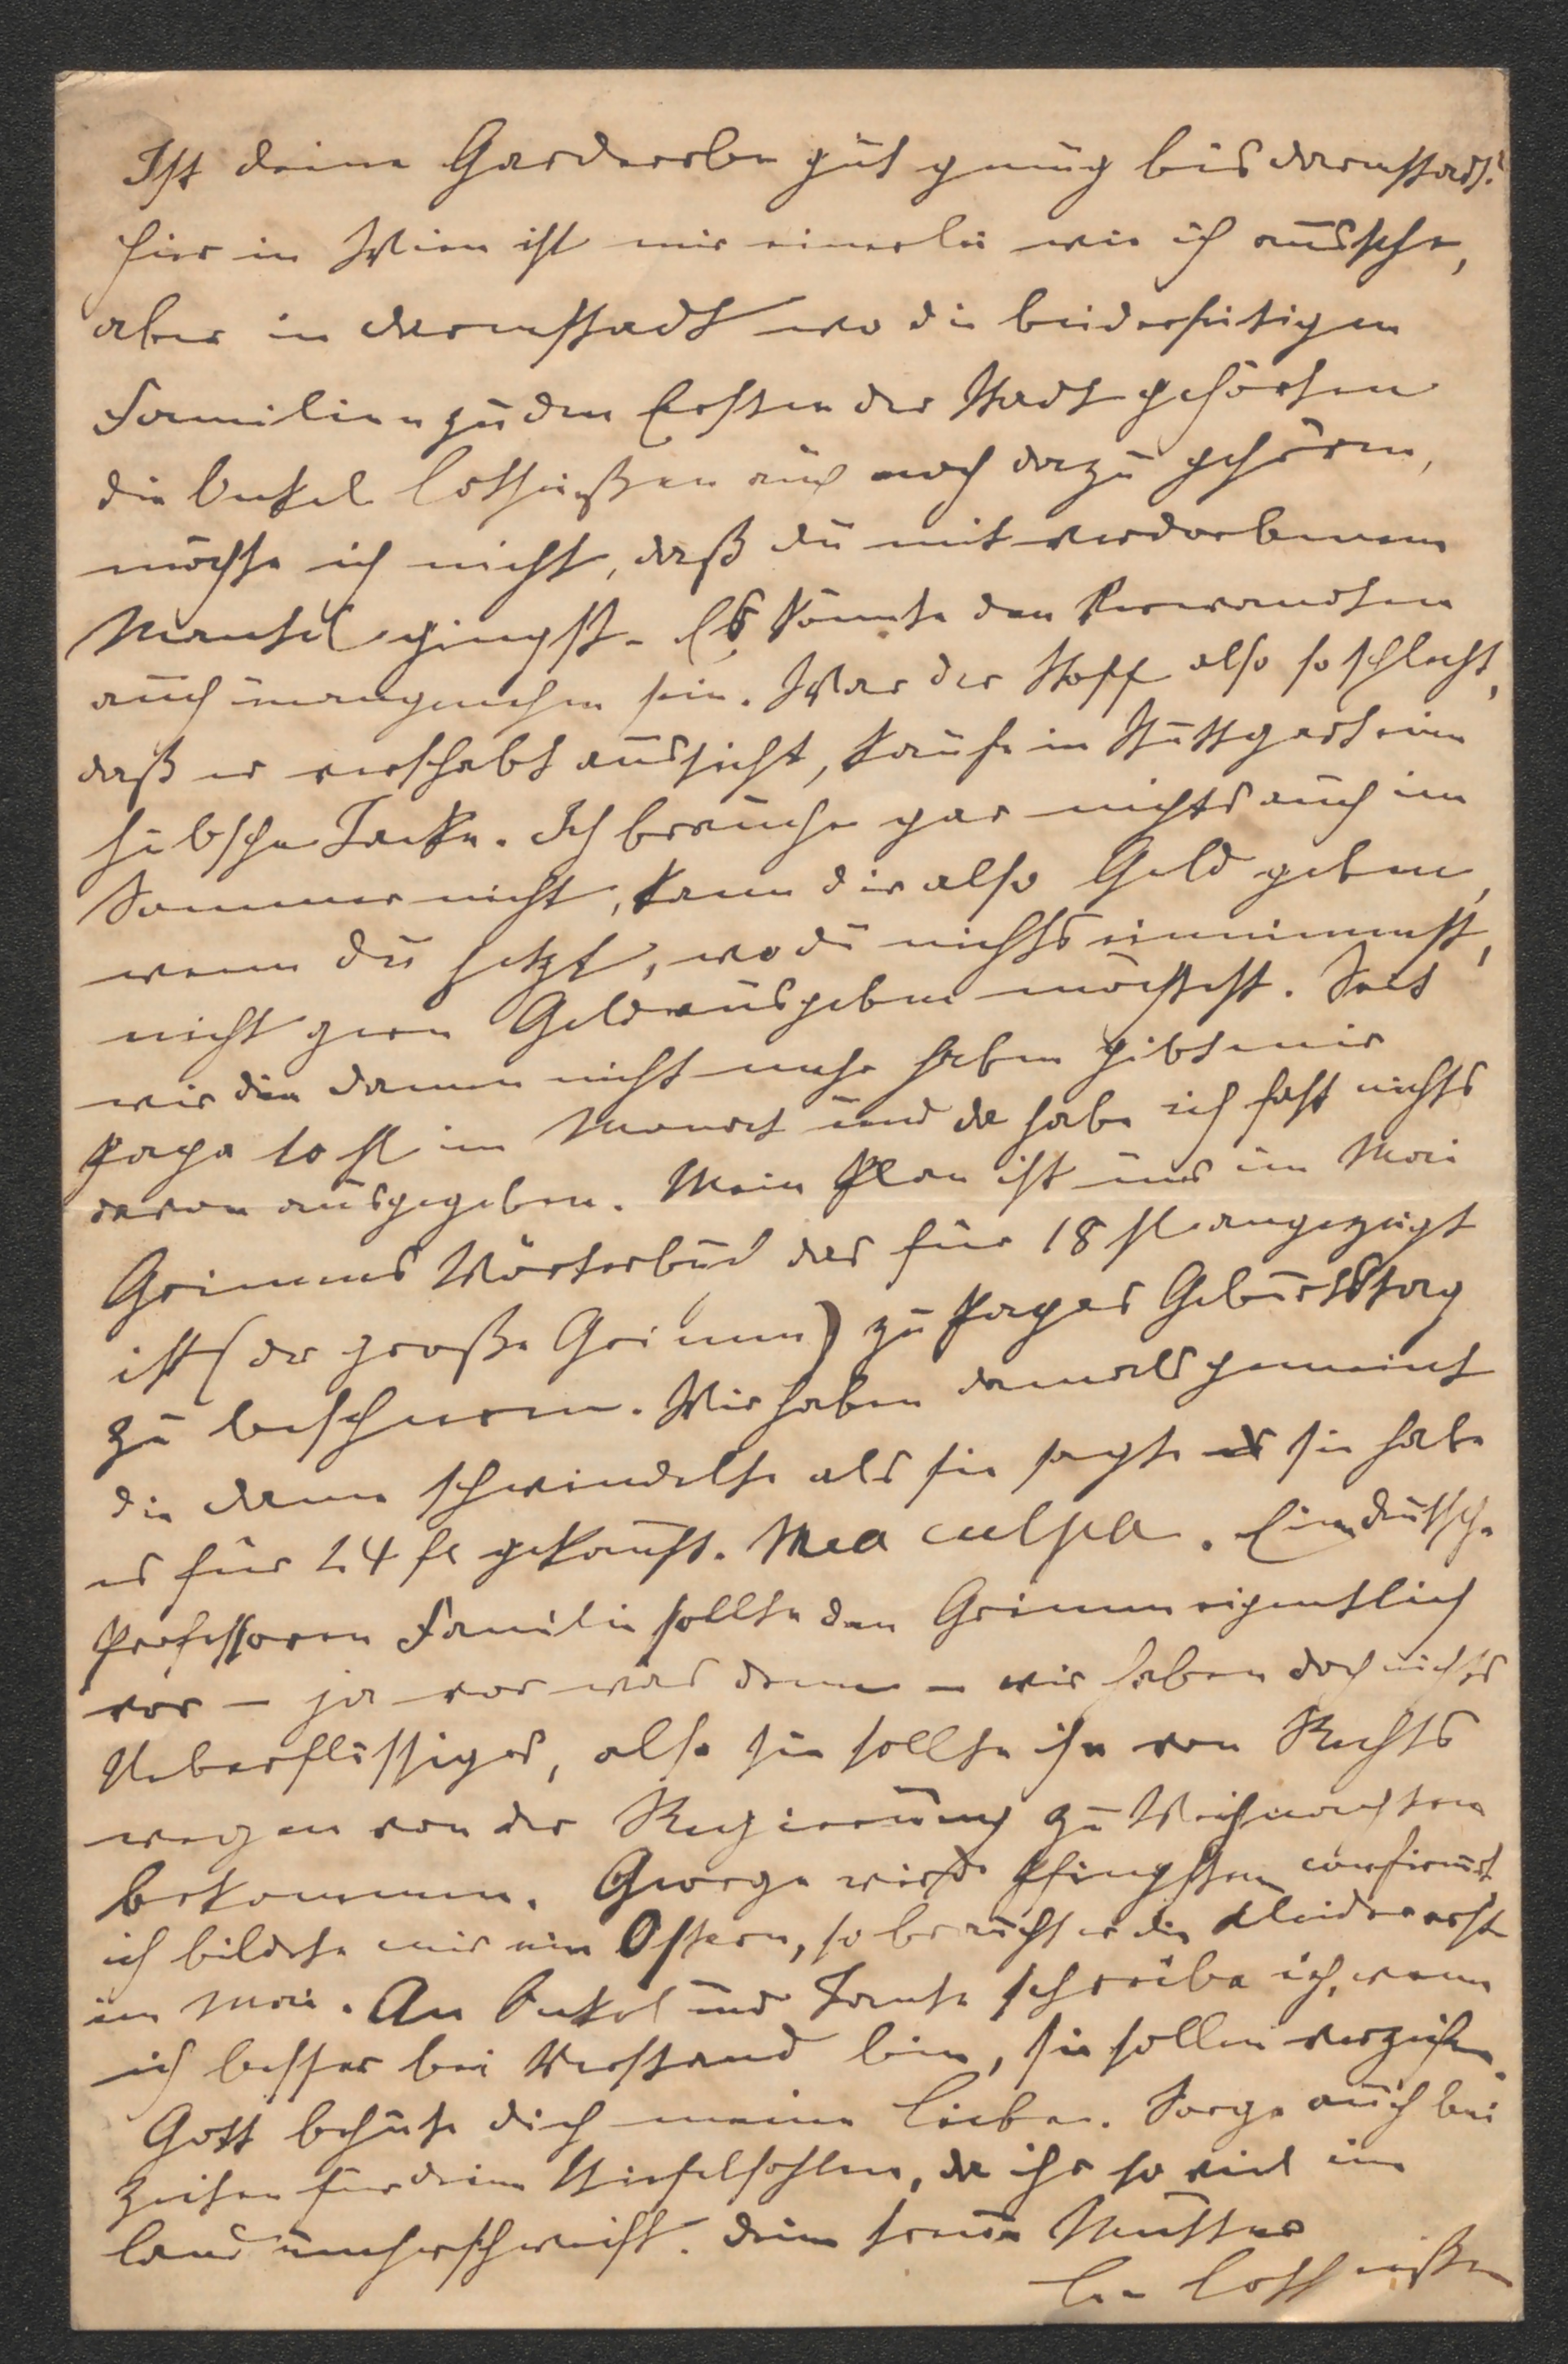 Ist deine Garderobe gut genug bis Darmstadt?
hier in Wien ist mir einerlei wie ich aussehe,
aber in Darmstadt wo die beiderseitigen
Familien zu den Ersten der Stadt gehörten
die Onkel Lotheißen auch noch dazu gehören,
möchte ich nicht, daß du mit verdorbenem
Mantel gingst. Es könnte den Verwandten
auch unangenehm sein. War der Stoff also so schlecht,
daß er verschabt aussieht, kaufe in Stuttgart eine
hübsche Jacke. Ich brauche gar nichts auch im
Sommer nicht, kann dir also Geld geben,
wenn du jetzt, wo du nichts einnimmst,
nicht gern Geld ausgeben möchtest. Seit
wir die Damen nicht mehr haben gibt mir
Papa 10 fl im Monat und da habe ich fast nichts
davon ausgegeben. Mein Plan ist uns im Mai
Grimms Wörterbuch das für 18 fl angezeigt
ist (der große Grimm) zu Papas Geburtstag
zu bescheren. Wir haben damals gemeint
die Dame schwindelte als sie sagte sie habe
es für 24 fl gekauft. Mea culpa. Eine deutsche
Professoren Familie sollte den Grimm eigentlich
vor – ja vor was denn – wir haben doch nichts
Ueberflüssiges, also sie sollte ihn von Rechts
wegen von der Regierung zu Weihnachten
bekommen. George wird Pfingsten confirmirt
ich bildete mir ein Ostern, so braucht er die Kleider erst
im Mai. An Onkel und Tante schreibe ich, wenn
ich besser bei Verstand bin, sie sollen verzeihen.
Gott behüte dich meine Liebe. Sorge auch bei
Zeiten für deine Stiefelsohlen, da ihr so viel im
Land umherschweift. Deine treue Mutter
Lotheißen